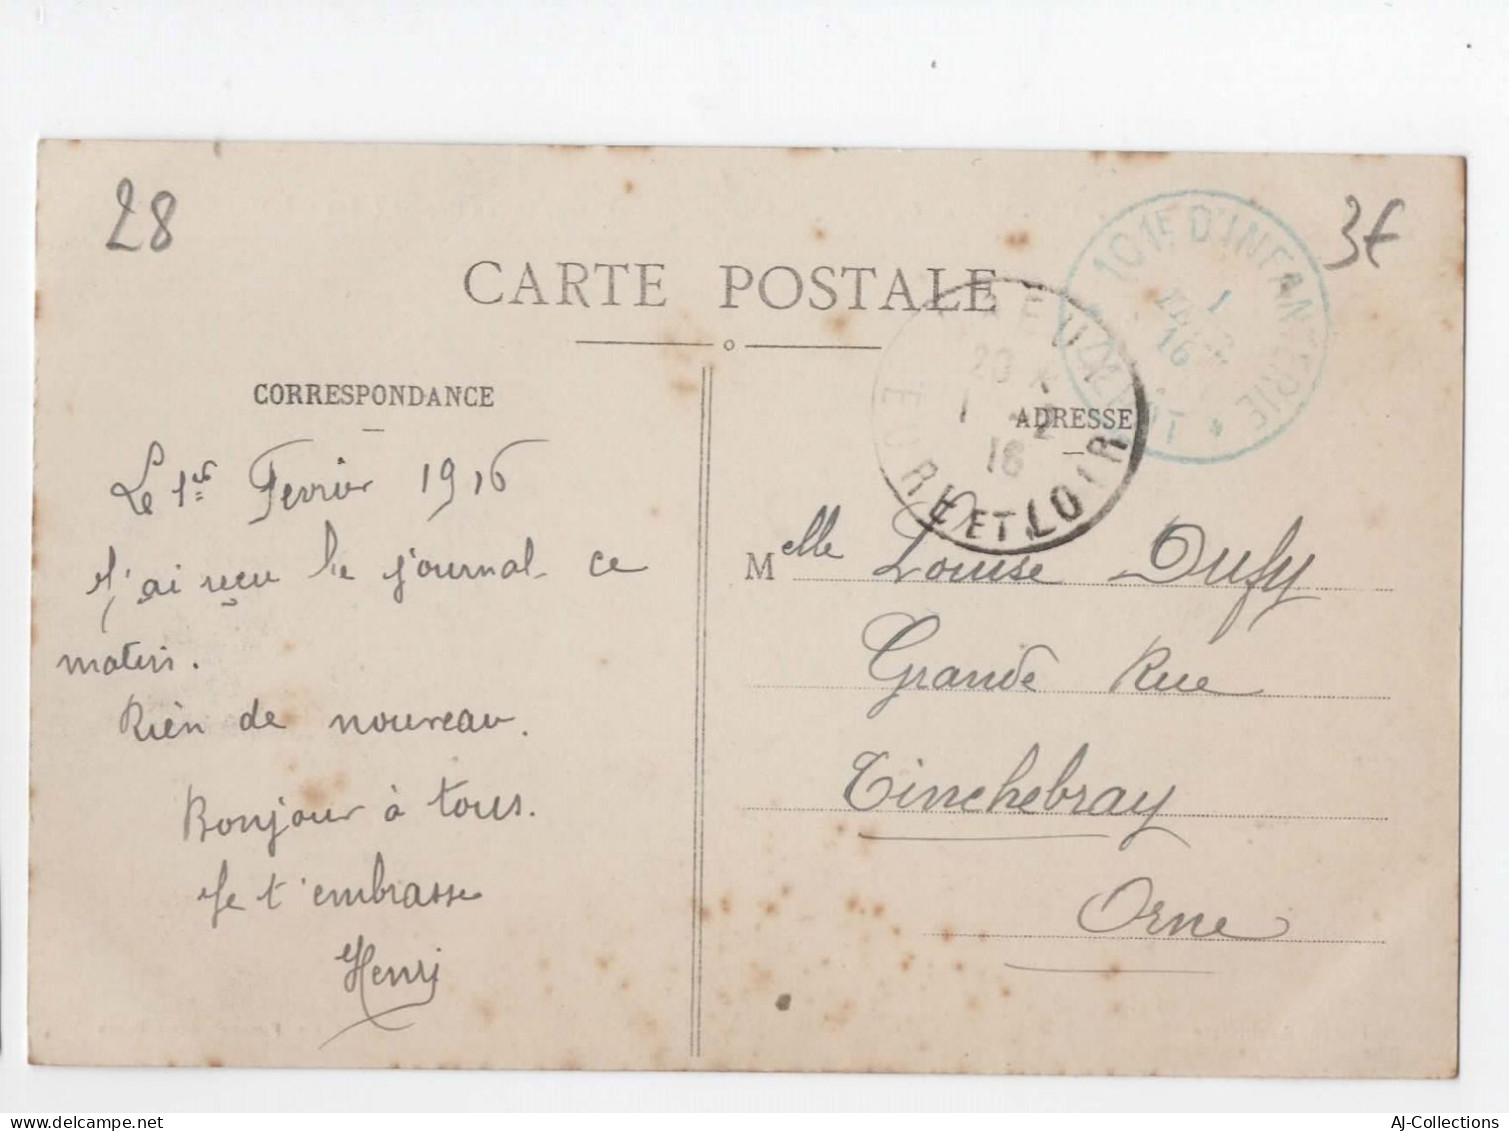 28
3€
CARTE POSTALE
101E D'INFANTERIE
DEPOT
1
16
DREUX
20
1 -2
16
EURE ET LOIR
CORRESPONDANCE
ADRESSE
Le 1er Fevrier 1916
J'ai reçu le journal ce
matin.
Rien de nouveau.
Bonjour à tous.
Je t'embrasse
Henri
Melle Louise Dufy
Grande Rue
Tinchebray
Orne
AJ-Collections